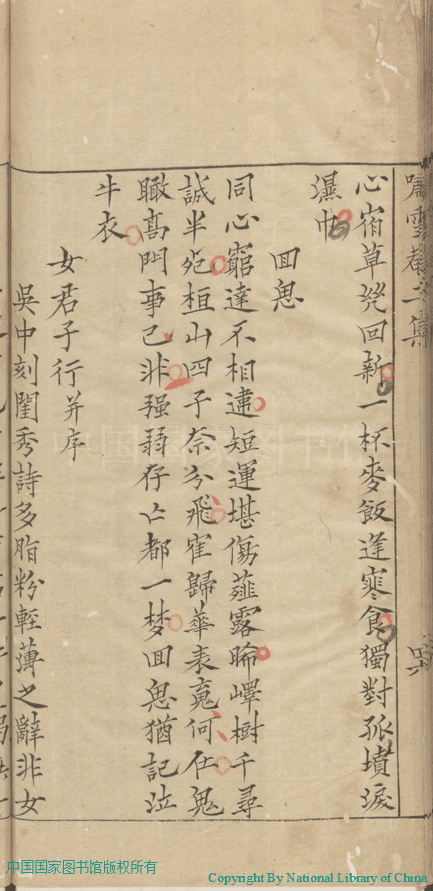 心宿草幾回新一杯麥飯逢寒食獨對孤墳淚
濕巾
回思
同心窮達不相違短運堪傷薤露晞嶧樹千尋
誠半死桓山四子奈分飛寉歸華表亮何在鬼
瞰高門事已非强弱存亡都一梦回思猶記泣
牛衣
女君子行并序
吳中刻閨秀詩多脂粉輕薄之辭非女
中国国家图书馆版权所有
Copyright By National Library of China